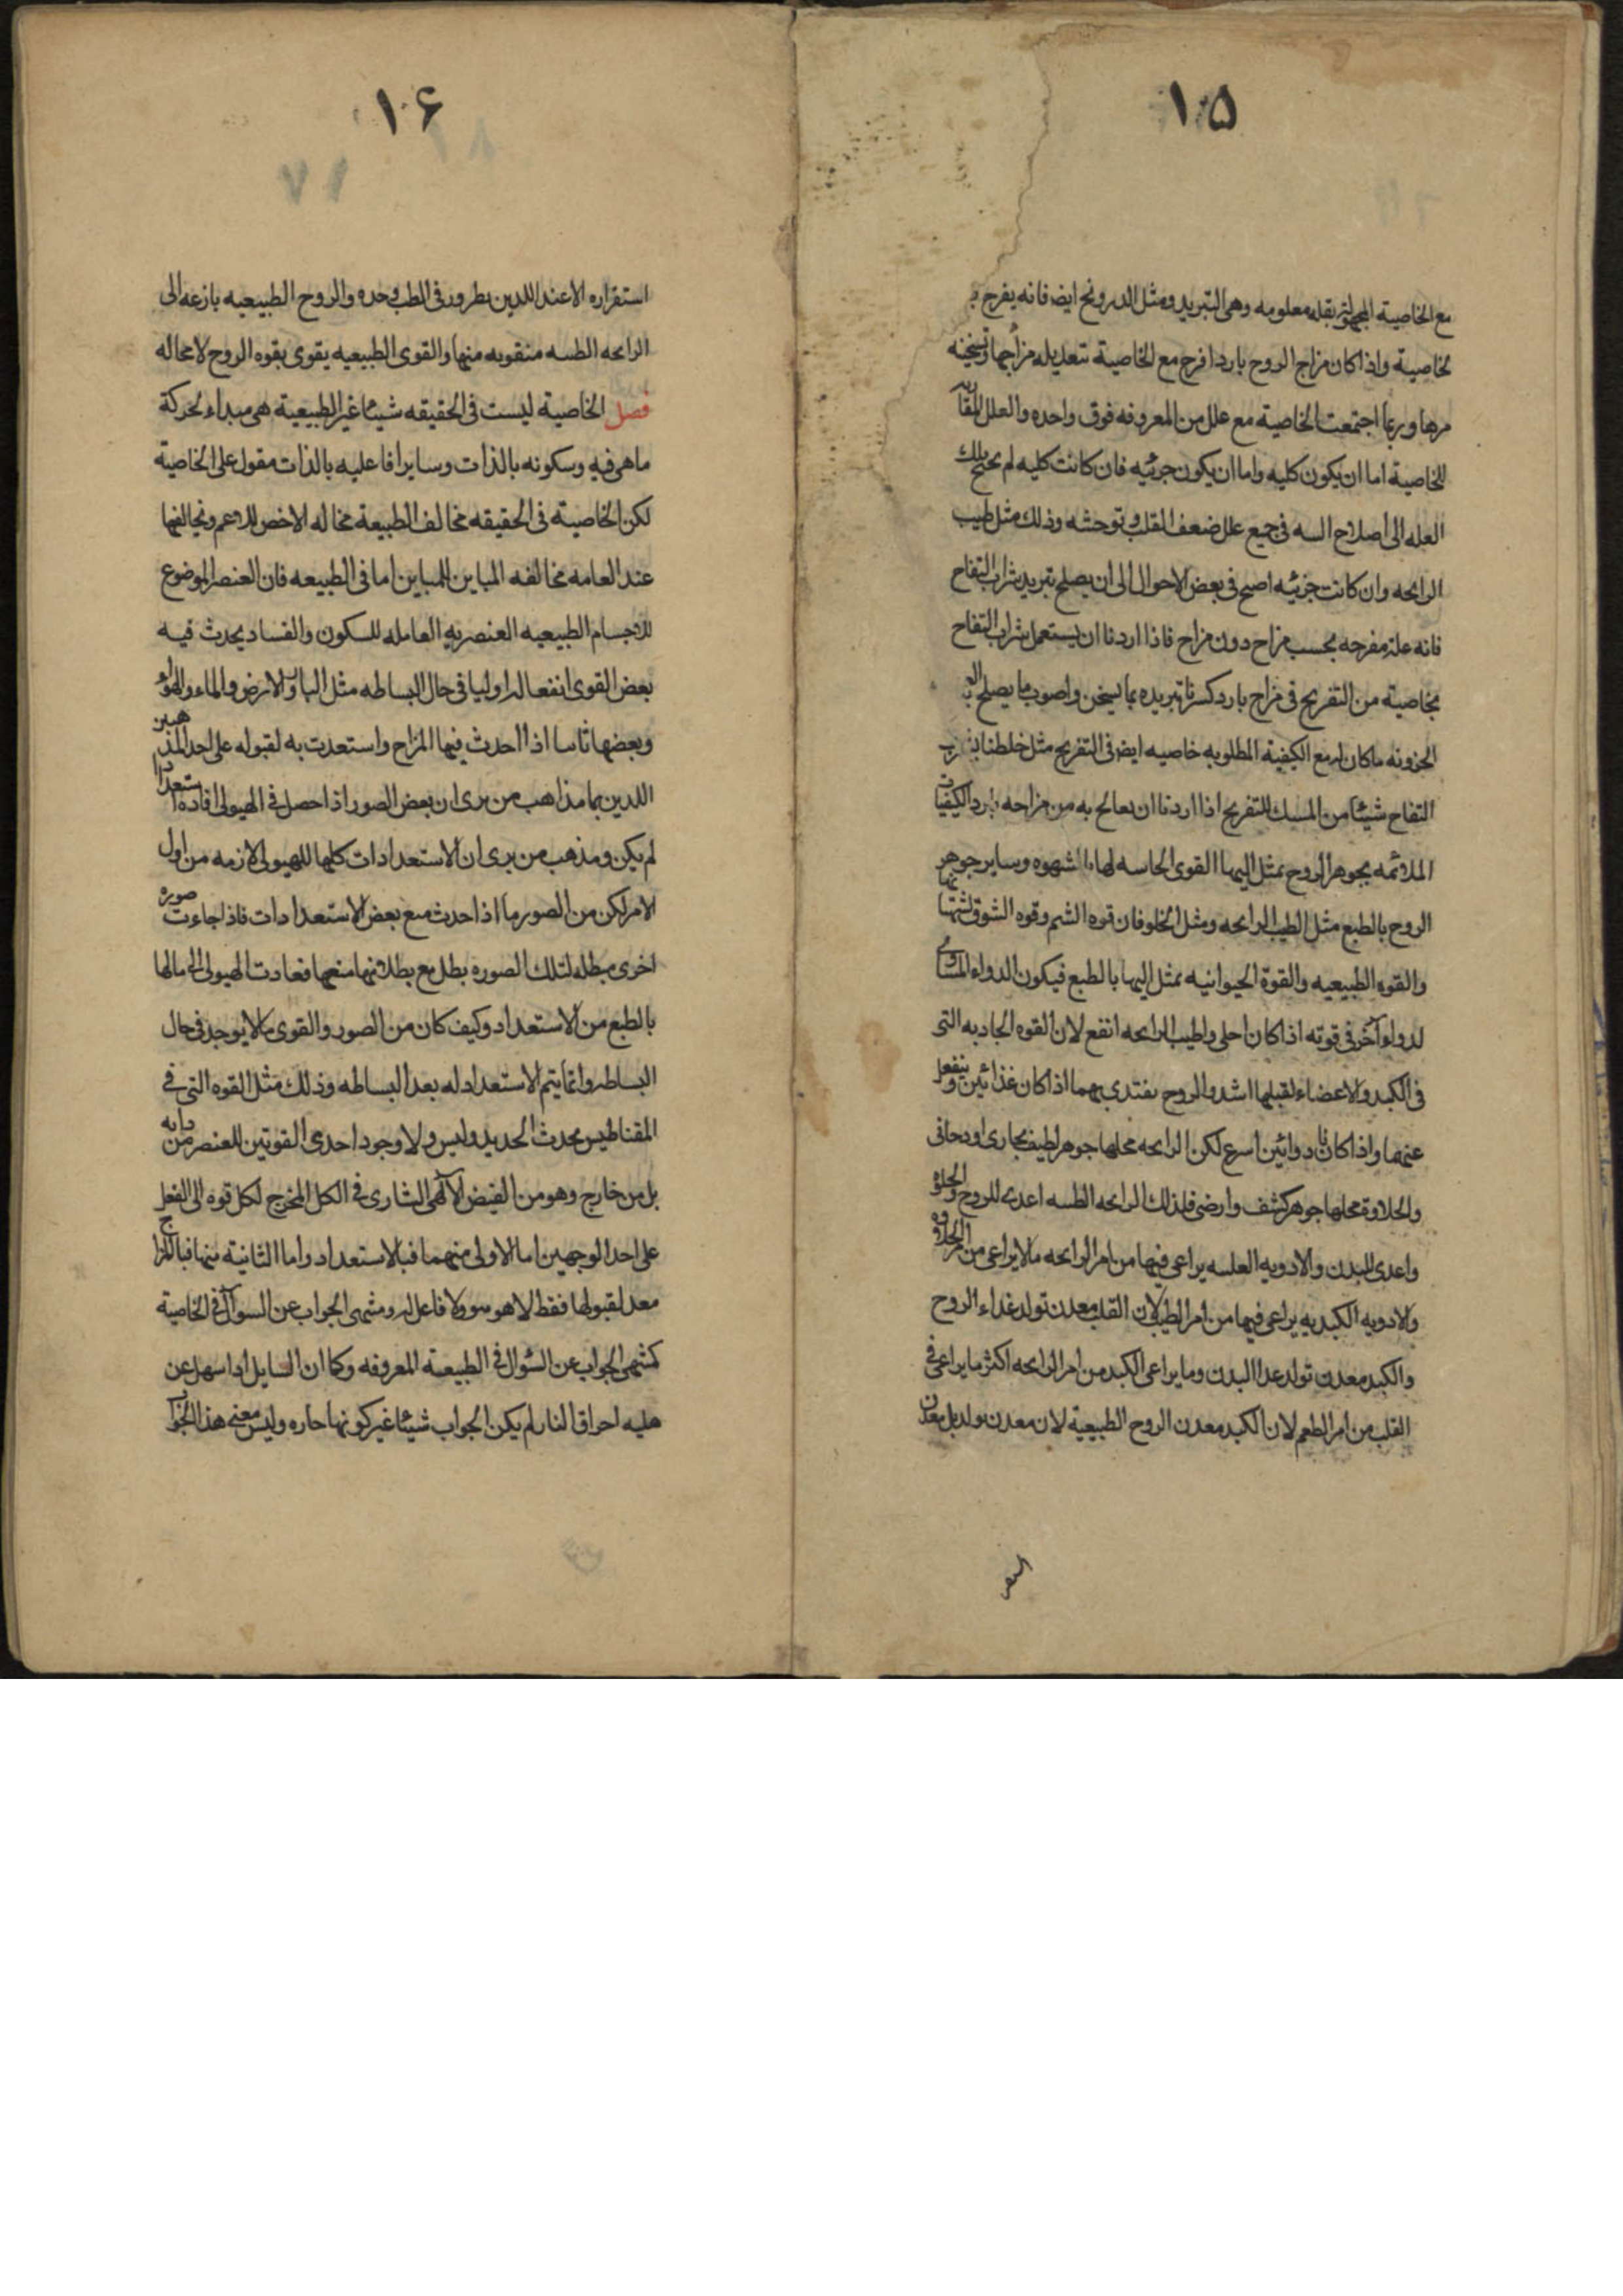 ١٠٥
مع الخاصية المجهولة بقلة معلومه وهى التبريد ومثل الدرونج ايضا فانه يفرح
بخاصية واذا كان مزاج الروح باردا فرح مع الخاصية بتعديله مزاجها وتسخينه
وربما اجتمعت الخاصية مع علل من المعروفه فوق واحده والعلل المقارنه
للخاصية اما ان يكون كليه واما ان يكون جزئيه فان كانت كليه لم يحتج تلك
العله الى اصلاح السه فى جميع علل ضعف القلب وتوحشه وذلك مثل طيب
الرايحه وان كانت جزئيه اصبح فى بعض الاحوال الى ان يصلح تبريد شراب التفاح
فانه علة مفرحه بحسب مزاج دون مزاج فاذا اردنا ان يستعمل شراب التفاح
بخاصية من التفريح فى مزاج بارد كسرنا تبريده بما يسخن واصوب ما يصلح به
الحزونه ما كان له مع الكيفية المطلوبه خاصيه ايضا فى التفريح مثل خلطنا بشراب
التفاح شيئا من المسك للتفريح اذا اردنا ان يعالج به من مزاجه بارد الكيفيات
الملائمه بجوهر الروح بمثل اليها القوى الحاسه لها الشهوه وساير جوهر
الروح بالطبع مثل الطيب الرايحه ومثل الحلو فان قوه الشم وقوه الشوق تشتهيها
والقوه الطبيعيه والقوة الحيوانيه بمثل اليها بالطبع فيكون الدواء المساوى
لدواء آخر فى قوته اذا كان احلى واطيب الرايحه انفع لان القوه الجاذبه التى
فى الكبد والاعضاء لقبلها اشد والروح يغتدى بهما اذا كان غذائين وينفعل
عنهما واذا كانا دوائين اسرع لكن الرايحه محلها جوهر لطيف بخارى او دخانى
والحلاوة محلها جوهر كشف وارضى فلذلك الرايحه الطسه اعدى للروح والحلاوه
واعدى للبدن والادويه العلسه يراعى فيها من امر الرايحه ما لا يراعى من امر الحلاوه
والادويه الكبديه يراعى فيها من امر الطيب لان القلب معدن تولد غذاء الروح
والكبد معدن تولد غدا البدن وما يراعى الكبد من امر الرايحه اكثر ما يراعى فى
القلب من امر الطعم لان الكبد معدن الروح الطبيعية لان معدن تولد بل معدن
١٠۶
استقراره الاعند اللدين يطرون فى الطب وحده والروح الطبيعيه بازعه الى
الرايحه الطسه متقويه منها والقوى الطبيعيه يقوى بقوه الروح لا محاله
فصل الخاصية ليست فى الحقيقه شيئا غير الطبيعية هى مبداء لحركة
ما هى فيه وسكونه بالذات وساير افاعليه بالذات مقول على الخاصية
لكن الخاصية فى الحقيقه مخالف الطبيعة مخاله الاخص للاعم ويخالفها
عند العامه مخالفه المباين للمباين اما فى الطبيعه فان العنصر الموضوع
للاجسام الطبيعيه العنصريه العامله للسكون والفساد يحدث فيه
بعض القوى انفعالا اوليا فى حال البساطه مثل النار والارض والماء والهواء
وبعضها ثانيا اذا احدث فيها المزاج واستعدت به لقبوله على احد المذهبين
اللدين هما مذاهب من يرى ان بعض الصور اذا حصل فى الهيولى افاده استعدادا
لم يكن ومذهب من يرى ان الاستعدادات كلها للهيولى لازمه من اول
الامر لكن من الصور ما اذا حدث منع بعض الاستعدادات فاذا جاءت صوره
اخرى مبطله لتلك الصوره بطل مع بطلانها منعها فعادت الهيولى الى ما لها
بالطبع من الاستعداد وكيف كان من الصور والقوى ما لا يوجد فى حال
البساطه وانما يتم الاستعداد له بعد البساطه وذلك مثل القوه التى فى
المقناطيس بحدث الحديد وليس ولا وجود احدى القوتين للعنصر من ذاته
بل من خارج وهو من الفيض الآلهى الشارى فى الكل المخرج لكل قوه الى الفعل
على احد الوجهين اما الاولى منهما فبالاستعداد واما الثانية منها فبالمزاج
معد لقبولها فقط لا هو ولا فاعل له ومنتهى الجواب عن السوال فى الخاصية
كمنتهى الجواب عن السؤال فى الطبيعة المعروفه وكما ان السايل اذا سهل عن
هليه احراق النار لم يكن الجواب شيئا غير كونها حاره وليس معنى هذا الجواب